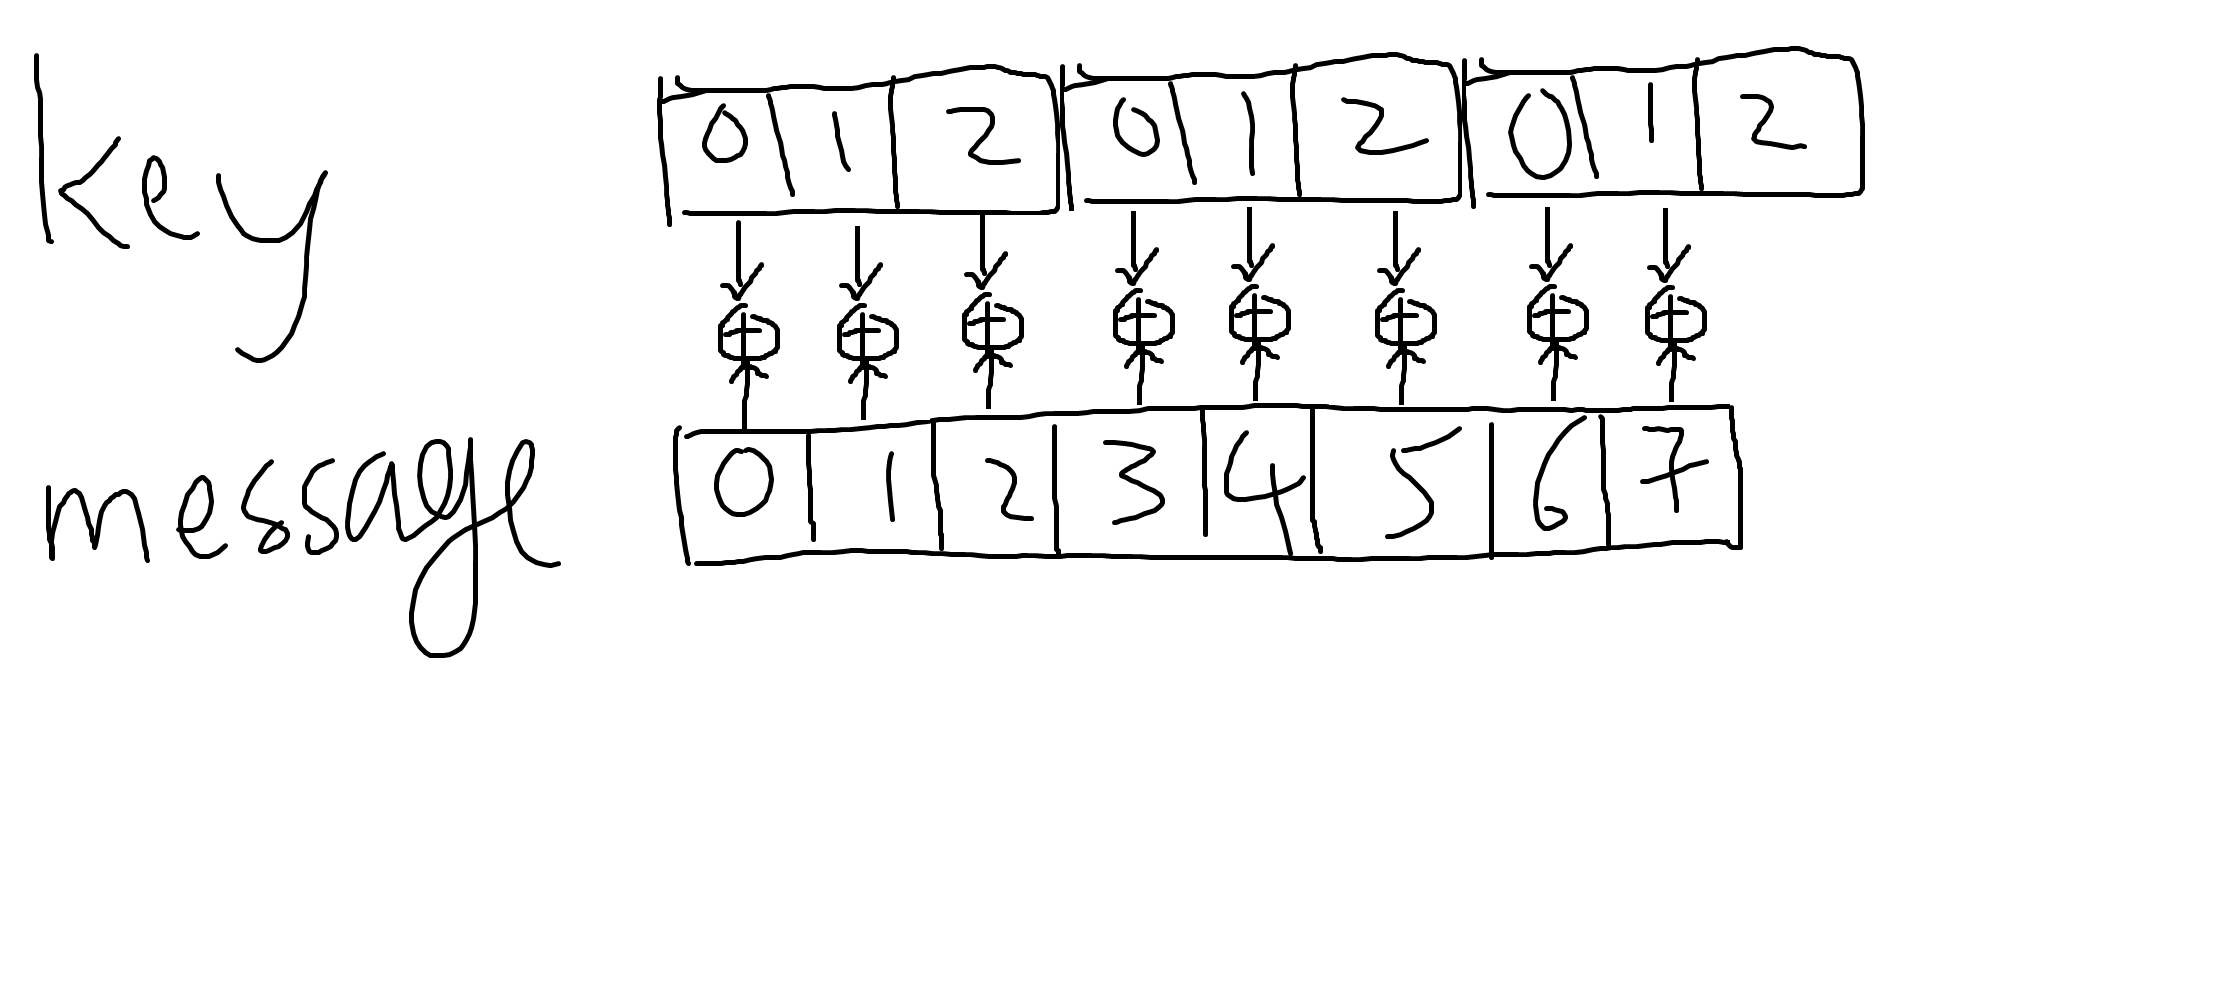 key 0 1 2 0 1 2 0 1 2
message 0 1 2 3 4 5 6 7